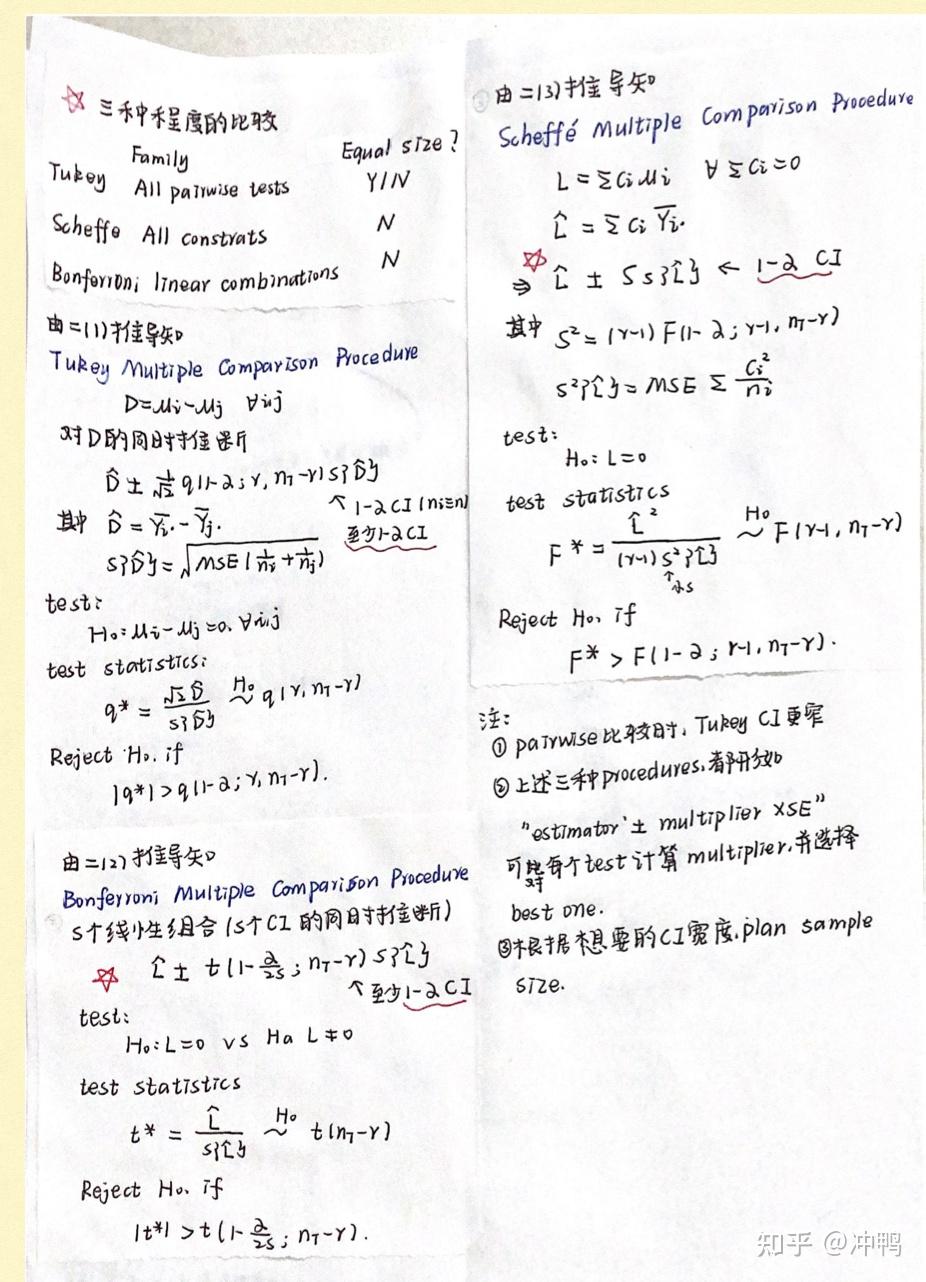 ☆ 三种程度的比较
Family Equal size?
Tukey All pairwise tests Y/N
Scheffe All constrats N
Bonferroni linear combinations N
由二(1)推导知
Tukey Multiple Comparison Procedure
D=μi-μj ∀i,j
对D的同时推断
D̂ ± 1/√2 q(1-α; r, nT-r) s{D̂}
↑ 1-α CI (ni≡n)
至少1-α CI
其中 D̂ = Ȳi. - Ȳj.
s{D̂} = √MSE(1/ni + 1/nj)
test:
H₀: μi-μj=0, ∀i,j
test statistics:
q* = √2 D̂ / s{D̂} ~ᴴ⁰ q(r, nT-r)
Reject H₀, if
|q*| > q(1-α; r, nT-r).
由二(2)推导知
Bonferroni Multiple Comparison Procedure
s个线性组合 (s个CI的同时推断)
☆ L̂ ± t(1-α/2s; nT-r) s{L̂}
↑ 至少1-α CI
test:
H₀: L=0 vs Ha L≠0
test statistics
t* = L̂ / s{L̂} ~ᴴ⁰ t(nT-r)
Reject H₀, if
|t*| > t(1-α/2s; nT-r).
由二(3)推导知
Scheffé Multiple Comparison Procedure
L = ΣCiμi ∀ΣCi=0
L̂ = ΣCi Ȳi.
☆ ⇒ L̂ ± S s{L̂} ← 1-α CI
其中 S² = (r-1) F(1-α; r-1, nT-r)
s²{L̂} = MSE Σ Ci²/ni
test:
H₀: L=0
test statistics
F* = L̂² / (r-1) s²{L̂} ~ᴴ⁰ F(r-1, nT-r)
↑小s
Reject H₀, if
F* > F(1-α; r-1, nT-r).
注:
① pairwise比较时, Tukey CI更窄
② 上述三种procedures, 都形如
"estimator ± multiplier × SE"
可对每个test计算multiplier, 并选择
best one.
③根据想要的CI宽度, plan sample
size.
知乎 @冲鸭